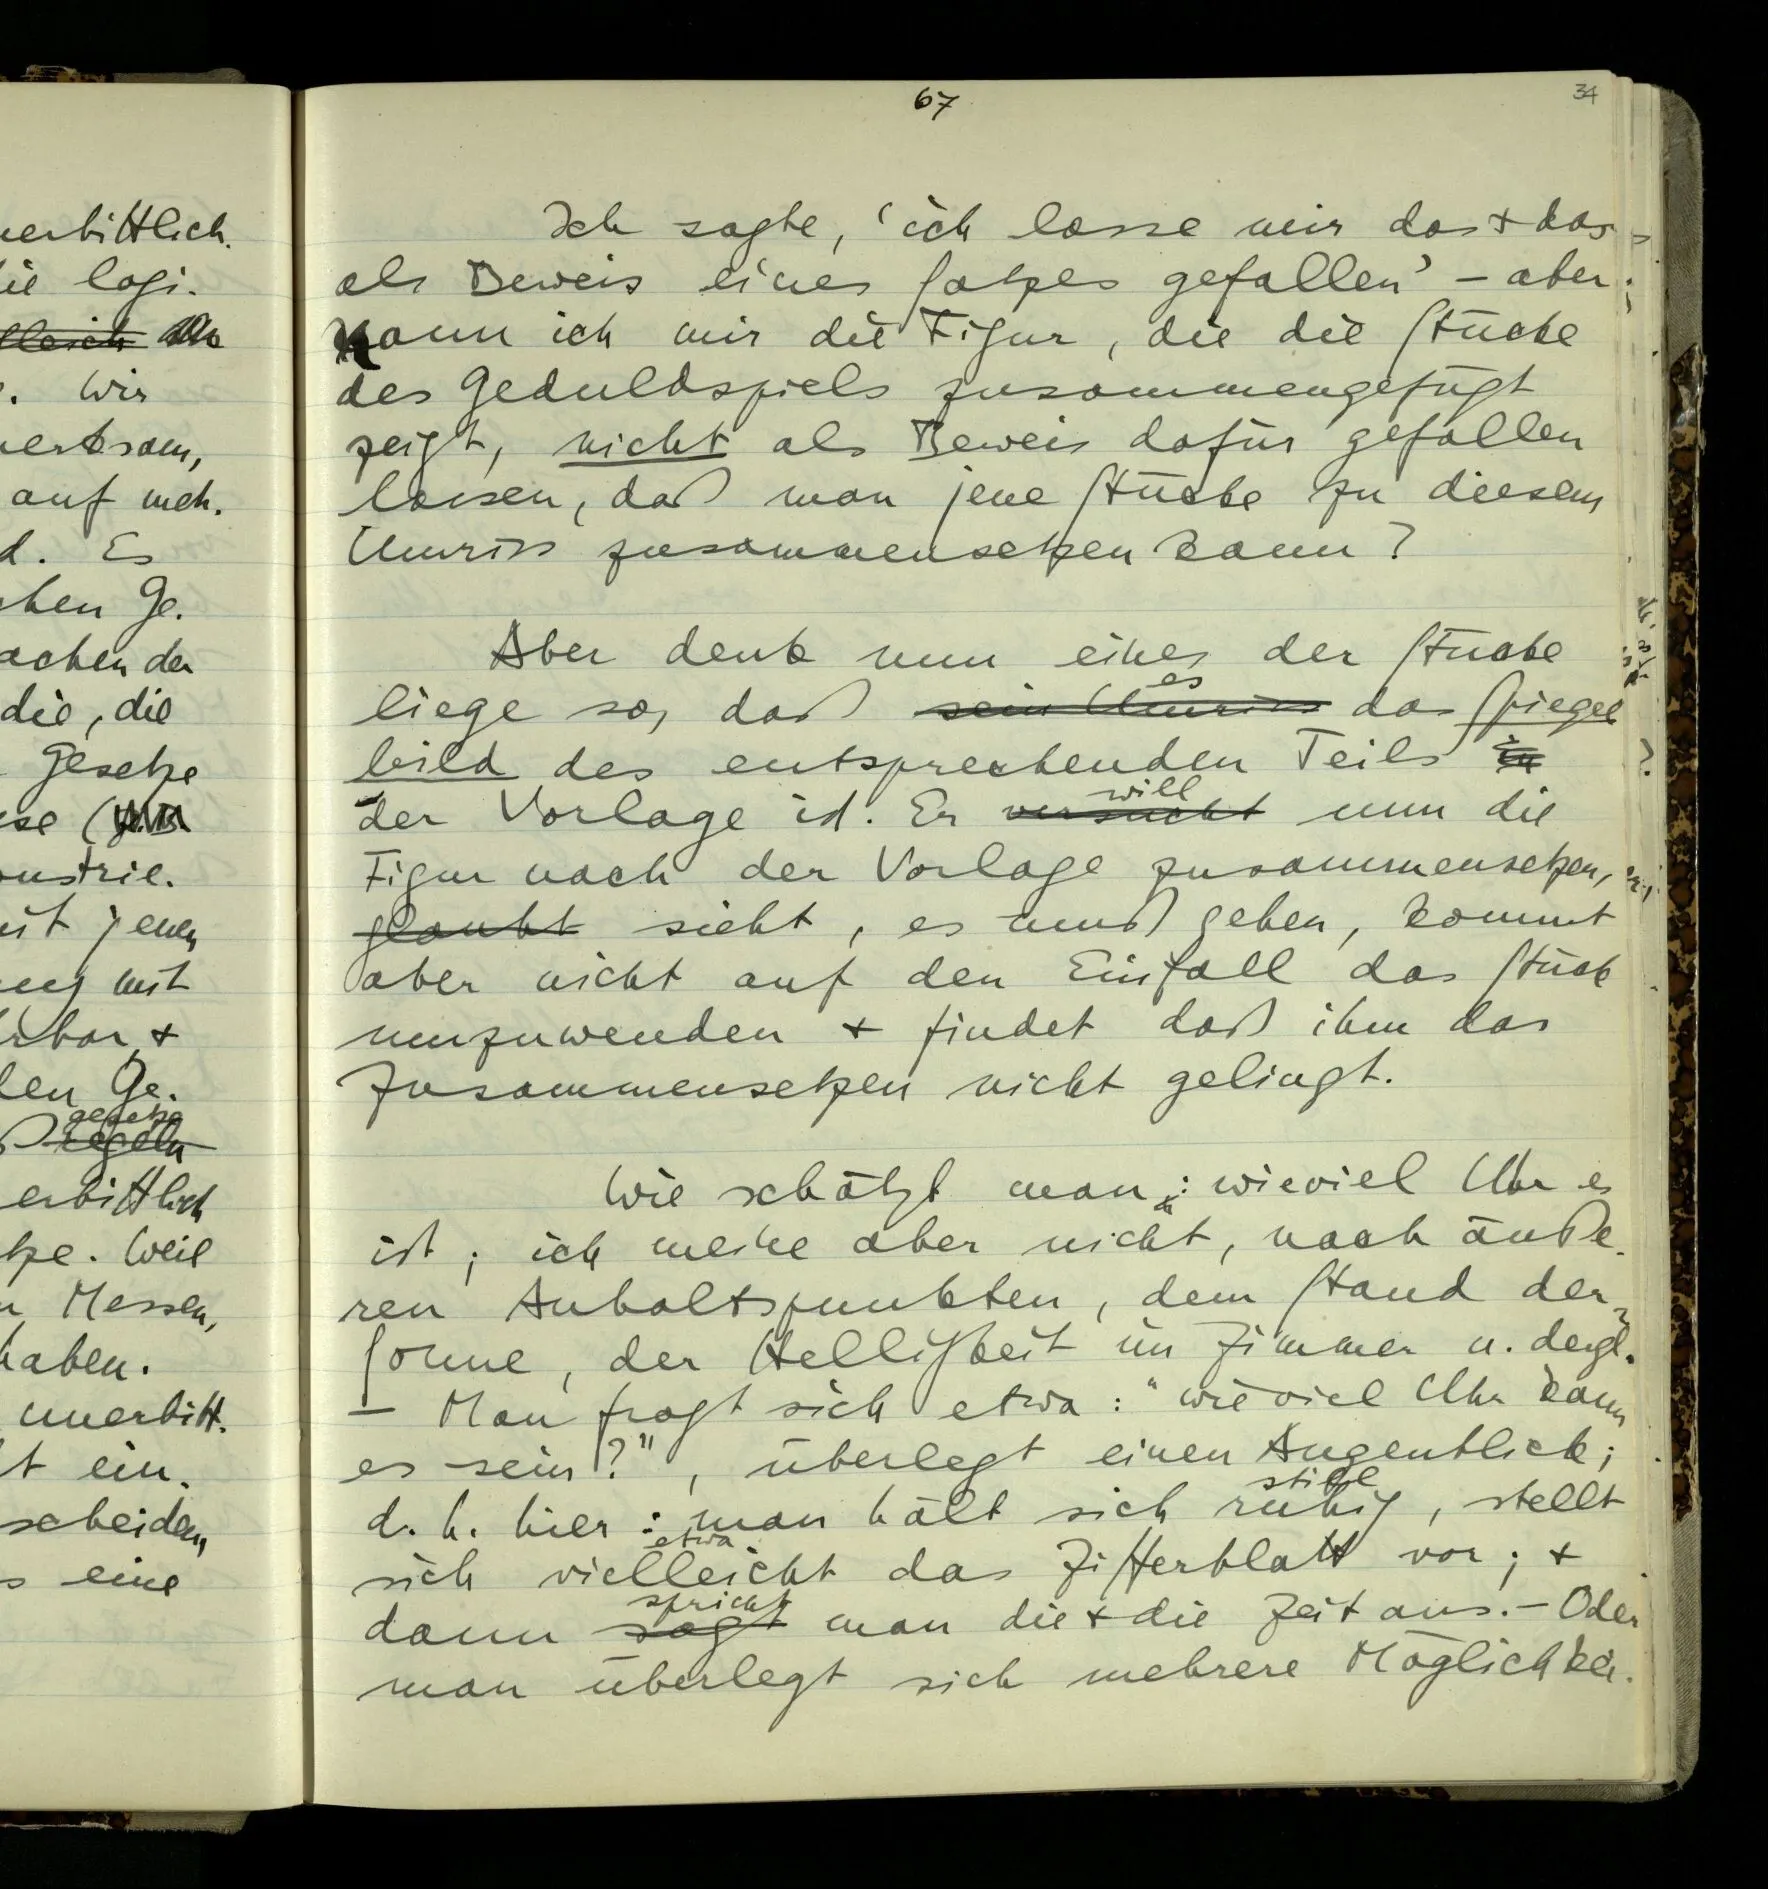 67
34
Ich sagte, ‘ich lasse mir das & das
als Beweis eines Satzes gefallen’ – aber
kann ich mir die Figur, die die Stücke
des Geduldspiels zusammengefügt
zeigt, nicht als Beweis dafür gefallen
lassen, daß man jene Stücke zu diesem
Umriss zusammensetzen kann?
Aber denk nun eines der Stücke
es
liege so, daß sein Umriss das Spiegel
bild des entsprechenden Teils in
will
der Vorlage ist. Er versucht nun die
Figur nach der Vorlage zusammensetzen,
glaubt sieht, es muß gehen, kommt
aber nicht auf den Einfall das Stück
umzuwenden & findet daß ihm das
Zusammensetzen nicht gelingt.
Wie schätzt man: wieviel Uhr es
ist; ich meine aber nicht, nach äuße-
ren Anhaltspunkten, dem Stand der
Sonne, der Helligkeit im Zimmer u. dergl.
– Man fragt sich etwa: "wieviel Uhr kann
es sein?", überlegt einen Augenblick;
still
d. h. hier: man hält sich ruhig, stellt
etwa
sich vielleicht das Zifferblatt vor; &
spricht
dann sagt man die & die Zeit aus. – Oder
man überlegt sich mehrere Möglichkei-
erbittlich.
ie logi-
lleich
. Wir
merksam,
auf meh-
d. Es
chen Ge-
achen der
die, die
Gesetze
se (
oustrie.
it jenen
mit
rbar &
len Ge-
gesetze
regeln
erbittlich
tze. Weil
n Messen,
haben.
unerbitt-
t ein-
scheiden,
s eine